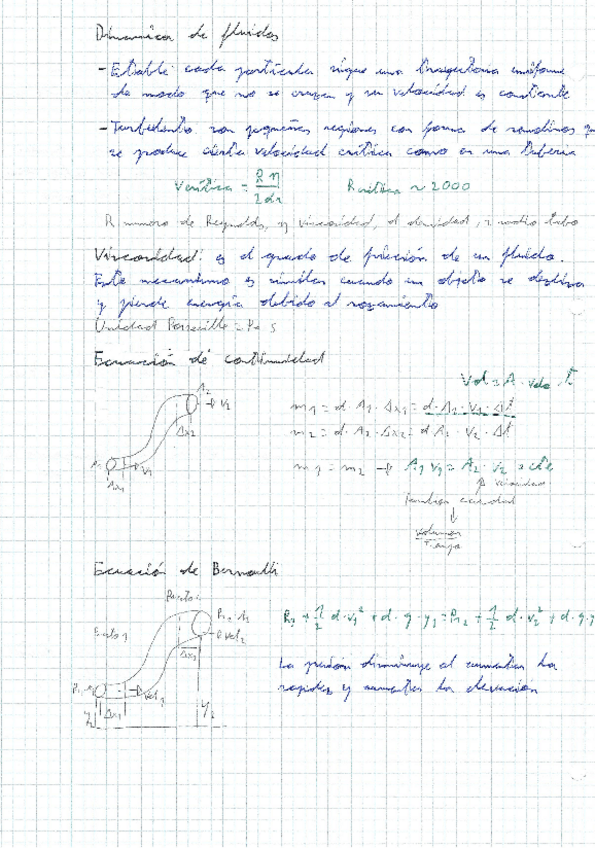 Dinamica de fluidos
- Estable cada particula sigue una trayectoria uniforme
de modo que no se cruzan y su velocidad es constante
- Turbulento son pequeñas regiones con forma de remolinos
se produce cierta velocidad critica como en una tuberia
Vcritica = R η / 2 d r    R critica ~ 2000
R numero de Reynolds, η viscosidad, d densidad, r radio tubo
Viscosidad: es el grado de fricción de un fluido.
Este mecanismo es similar cuando un objeto se desliza
y pierde energia debido al rozamiento
Unidad Poiseuille = Pa s
Ecuación de continuidad
Vol = A · velo · t
A2
v2
Δx2
v1
Δx1
m1 = d · A1 · Δx1 = d · A1 · V1 · Δt
m2 = d · A2 · Δx2 = d A2 · V2 · Δt
m1 = m2 → A1 v1 = A2 · v2 = cte
velocidad
caudal
volumen
tiempo
Ecuación de Bernoulli
Punto 2
Punto 1
Δx2
Δx1
y2
P1 + 1/2 d · v1² + d · g · y1 = P2 + 1/2 d · v2² + d · g · y
La presión disminuye al aumentar la
rapidez y aumentar la elevación